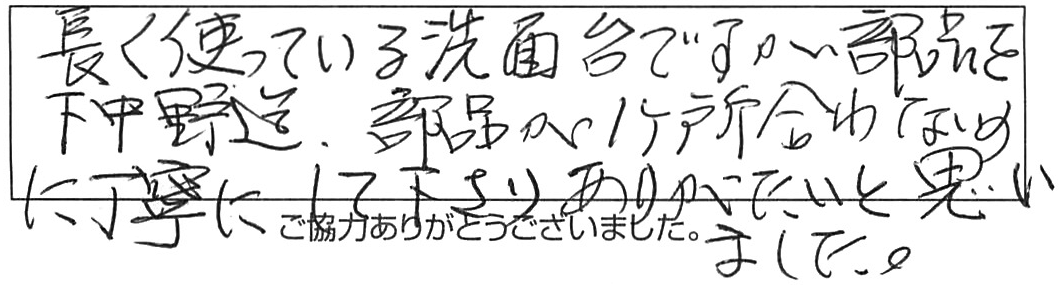 長く使っている洗面台ですが部品を
下中野迄、部品が1ケ所合わないの
に丁寧にして下さりありがたいと思い
ご協力ありがとうございました。
ました。